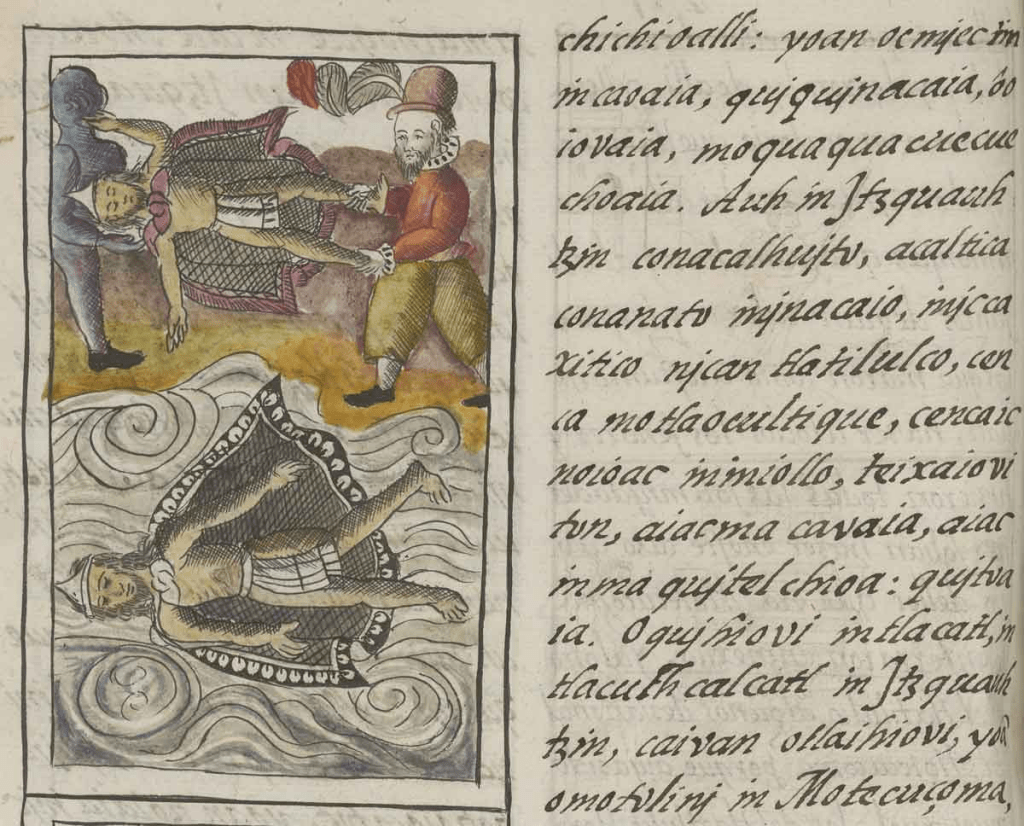 chichioalli: yoan oc mjec im
in caoaia, qujqujnacaia, oo
iovaia, moquaquacuecue
choaia. Auh in Jtzquauh
tzin conacalhujto, acaltica
conanato injnacaio, injc ca
xitico njcan tlatilulco, cen
ca motlaocultique, cencaic
noioac ininiollo, teixaiovi
ton, aiac ma cavaia, aiac
inma qujtelchioa: qujtoa
ia. Oqujhiovi in tlacatl, in
tlacuchcalcatl in Jtzquauh
tzin, caivan ollaihiovi, yoã
omotolinj in Motecuçoma,